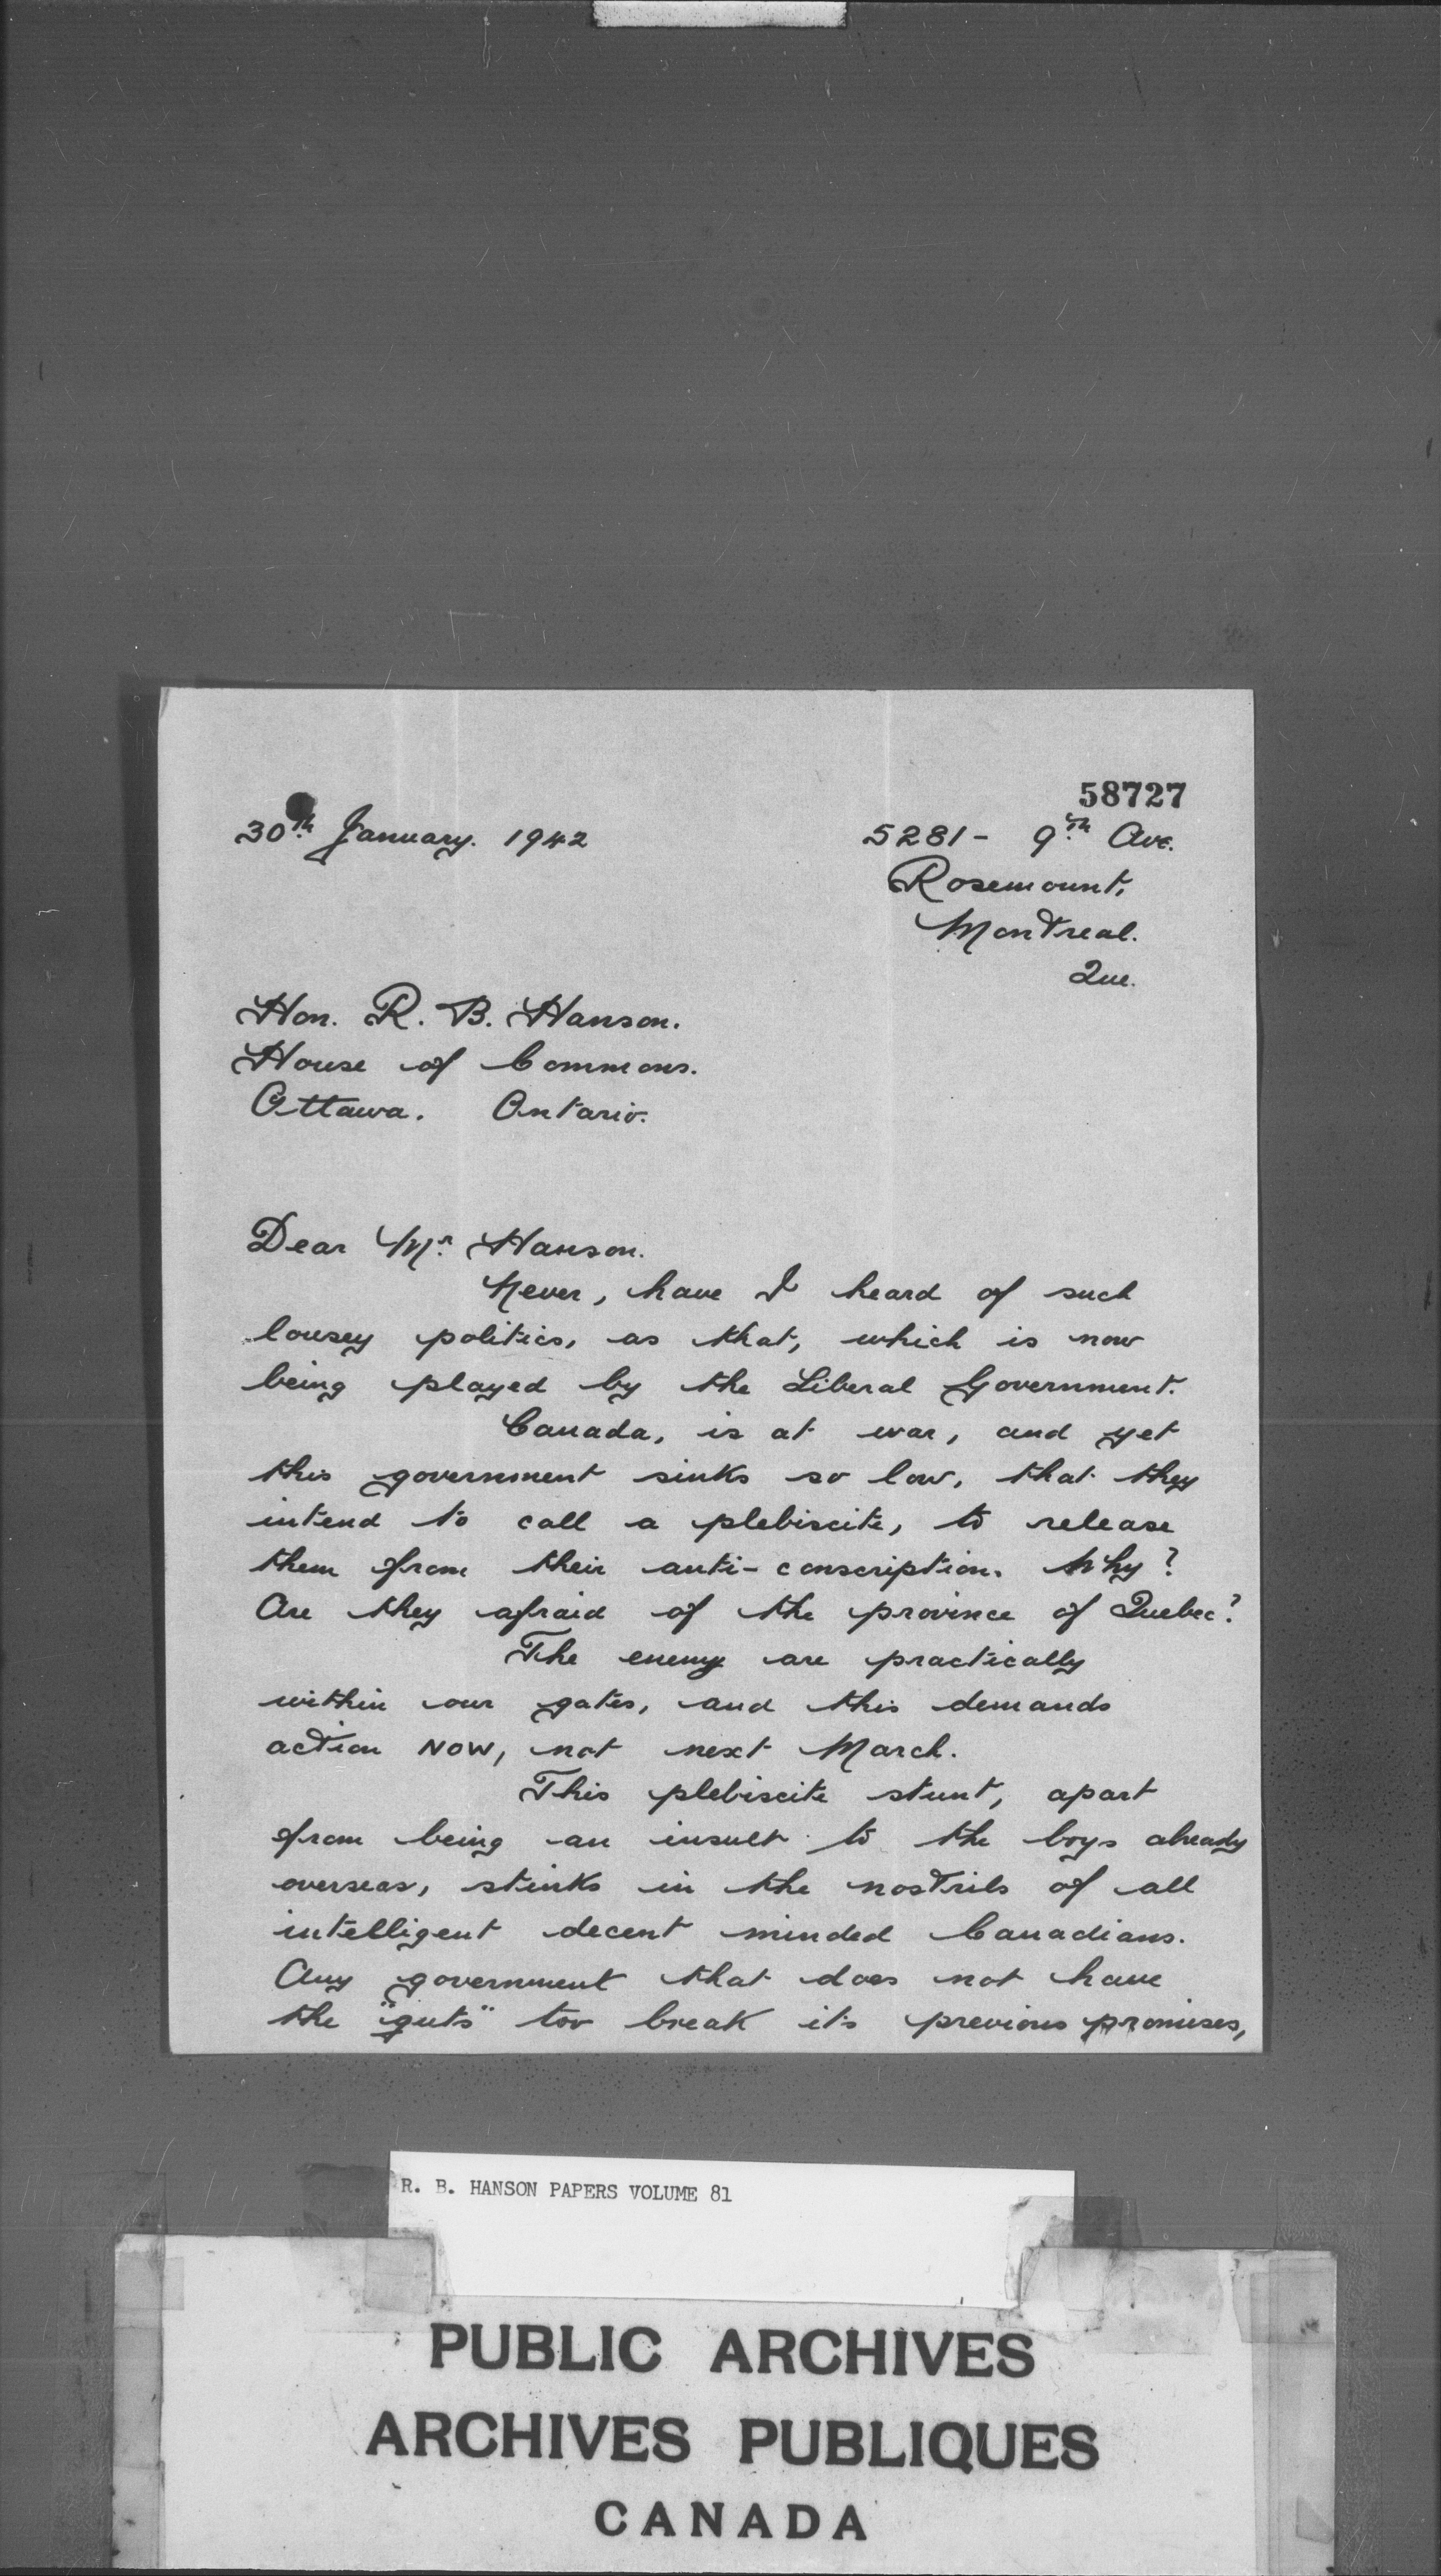 58727
30th January. 1942
5281 - 9th Ave.
Rosemount,
Montreal.
Que.
Hon. R. B. Hanson.
House of Commons.
Ottawa. Ontario.
Dear Mr. Hanson.
Never, have I heard of such
lousey politics, as that, which is now
being played by the Liberal Government.
Canada, is at war, and yet
this government sinks so low, that they
intend to call a plebiscite, to release
them from their anti-conscription. Why?
Are they afraid of the province of Quebec?
The enemy are practically
within our gates, and this demands
action NOW, not next March.
This plebiscite stunt, apart
from being an insult to the boys already
overseas, stinks in the nostrils of all
intelligent decent minded Canadians.
Any government that does not have
the "guts" too break it's previous promises,
R. B. HANSON PAPERS VOLUME 81
PUBLIC ARCHIVES
ARCHIVES PUBLIQUES
CANADA